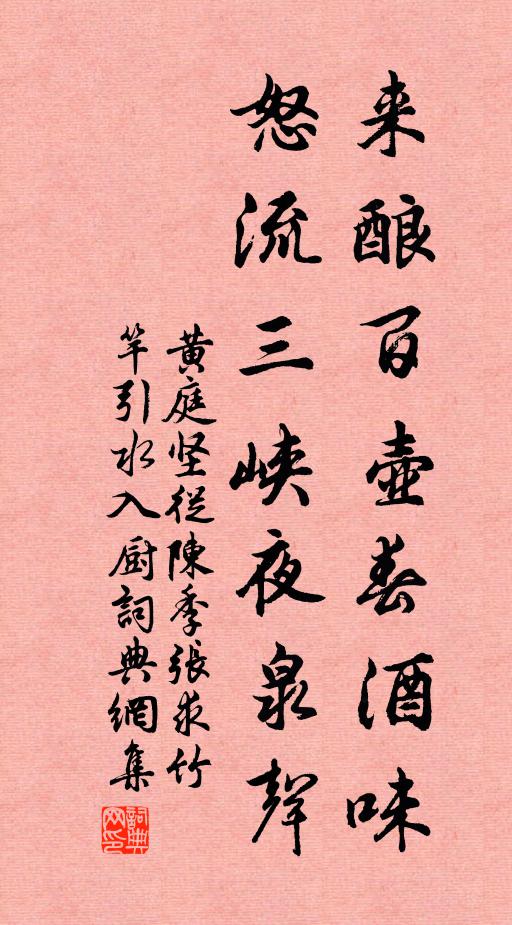 来酿百壶春酒味
怒流三峡夜泉声
黄庭坚从陈季张求竹
竿引水入厨词典网集
词典网印